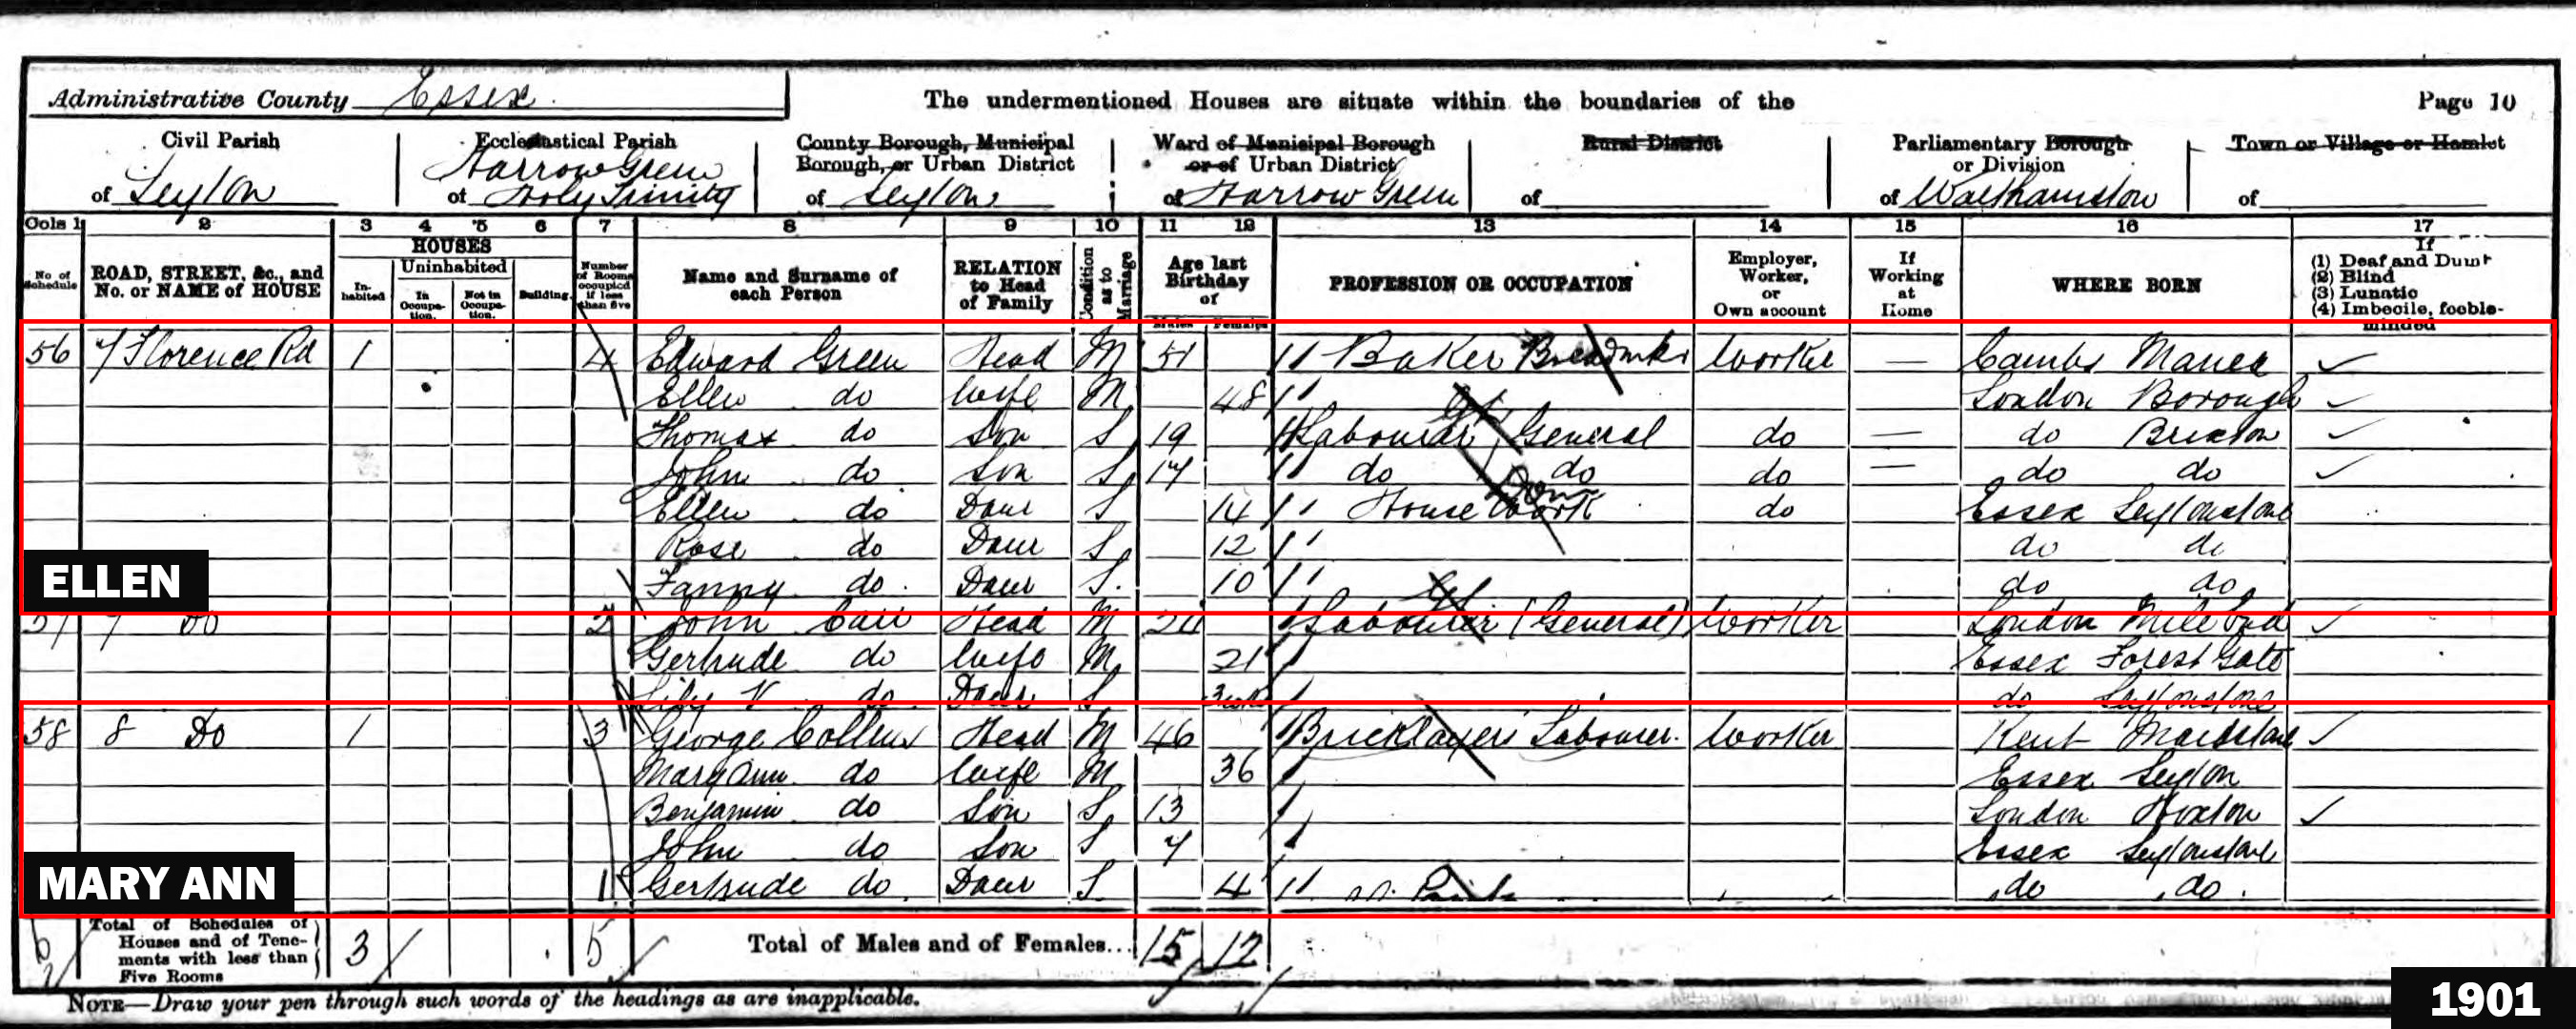 Administrative County Essex
The undermentioned Houses are situate within the boundaries of the
Page 10
Civil Parish of Leyton
Ecclesiastical Parish of Harrow Green Holy Trinity
County Borough, Municipal Borough, or Urban District of Leyton
Ward of Municipal Borough or of Urban District of Harrow Green
Rural District of
Parliamentary Borough or Division of Walthamstow
Town or Village or Hamlet of
Cols 1 2 3 4 5 6 7 8 9 10 11 12 13 14 15 16 17
No of Schedule
ROAD, STREET, &c., and No. or NAME of HOUSE
HOUSES
In-habited
Uninhabited
In Occupa-tion.
Not in Occupa-tion.
Building.
Number of Rooms occupied if less than five
Name and Surname of each Person
RELATION to Head of Family
Condition as to Marriage
Age last Birthday of
Males Females
PROFESSION OR OCCUPATION
Employer, Worker, or Own account
If Working at Home
WHERE BORN
If
(1) Deaf and Dumb
(2) Blind
(3) Lunatic
(4) Imbecile, feeble-minded
56 7 Florence Rd 1 4 Edward Green Head M 51 Baker Worker Cambs Manea
Ellen do Wife M 48 London Borough
Thomas do Son S 19 Labourer General do do Brixton
John do Son S 17 do do do do do
Ellen do Daur S 14 House Work do Essex Leytonstone
Rose do Daur S 12 do do
Fanny do Daur S 10 do do
ELLEN
57 7 Do 2 John Head M Labourer (General) Worker London Mile End
Gertrude do Wife M 21 Essex Forest Gate
Lily V do Daur S do Leytonstone
58 8 Do 1 3 George Collens Head M 46 Bricklayers Labourer Worker Kent Maidstone
Mary Ann do Wife M 36 Essex Leyton
Benjamin do Son S 13 London Hoxton
John do Son S 7 Essex Leytonstone
Gertrude do Daur S 4 do do
MARY ANN
Total of Schedules of Houses and of Tene-ments with less than Five Rooms 3 5 Total of Males and of Females... 15 12
NOTE—Draw your pen through such words of the headings as are inapplicable.
1901